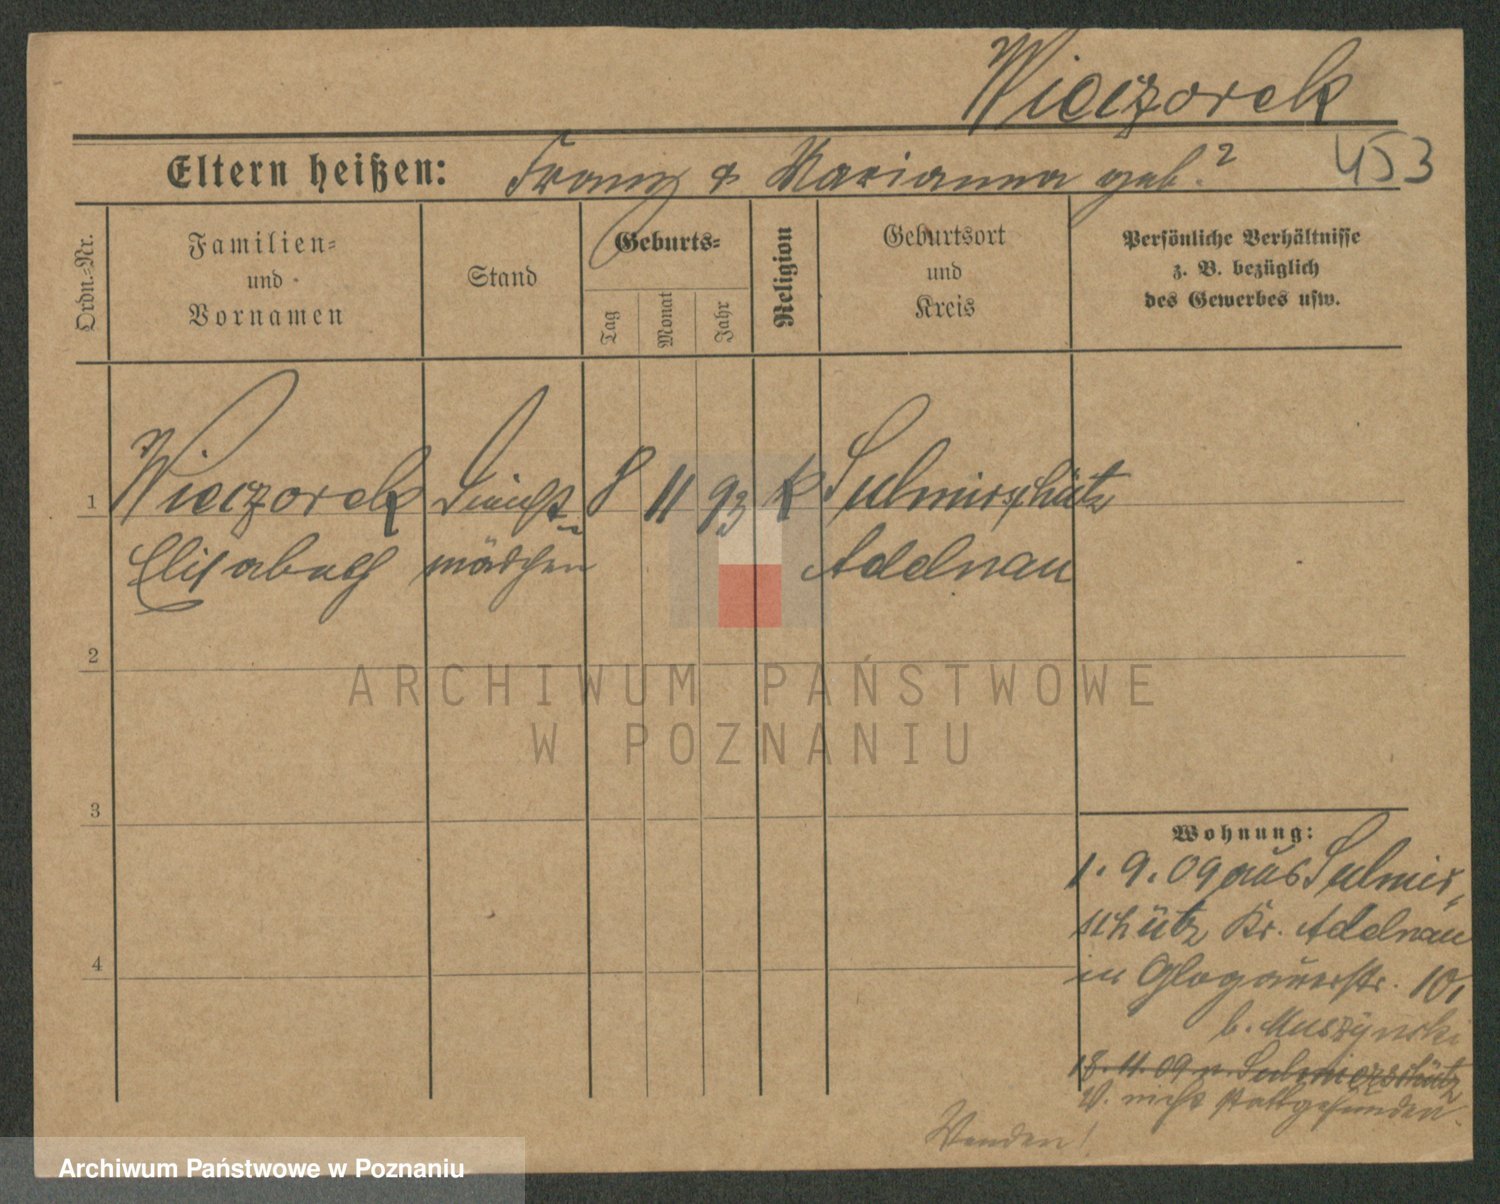 Wieczorek
Eltern heißen: Franz & Marianna geb. ? 453
Ordn.=Nr.
Familien=
und
Vornamen
Stand
Geburts=
Tag
Monat
Jahr
Religion
Geburtsort
und
Kreis
Persönliche Verhältnisse
z. B. bezüglich
des Gewerbes usw.
1 Wieczorek Dienst= 8 11 93 k Sulmirschütz
Elisabeth mädchen Adelnau
2
3
4
Wohnung:
1. 9. 09 aus Sulmir=
schütz Kr. Adelnau
in Glogauerstr. 10,
b. Muszynski
18. 11. 09 n. Sulmierschütz
V. nicht stattgefunden.
Wenden!
ARCHIWUM PAŃSTWOWE
W POZNANIU
Archiwum Państwowe w Poznaniu